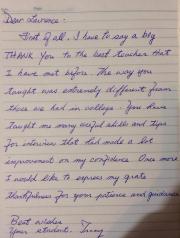 Dear Lawrence:
First of all. I have to say a big
THANK You to the best teacher that
I have met before. The way you
taught was extremely different from
those we had in college. You have
taught me many useful skills and tips
for interview that had made a lot
improvement on my confidence. Once more
I would like to express my grate
thankfulness for your patience and guidance.
Best wishes
Your student.